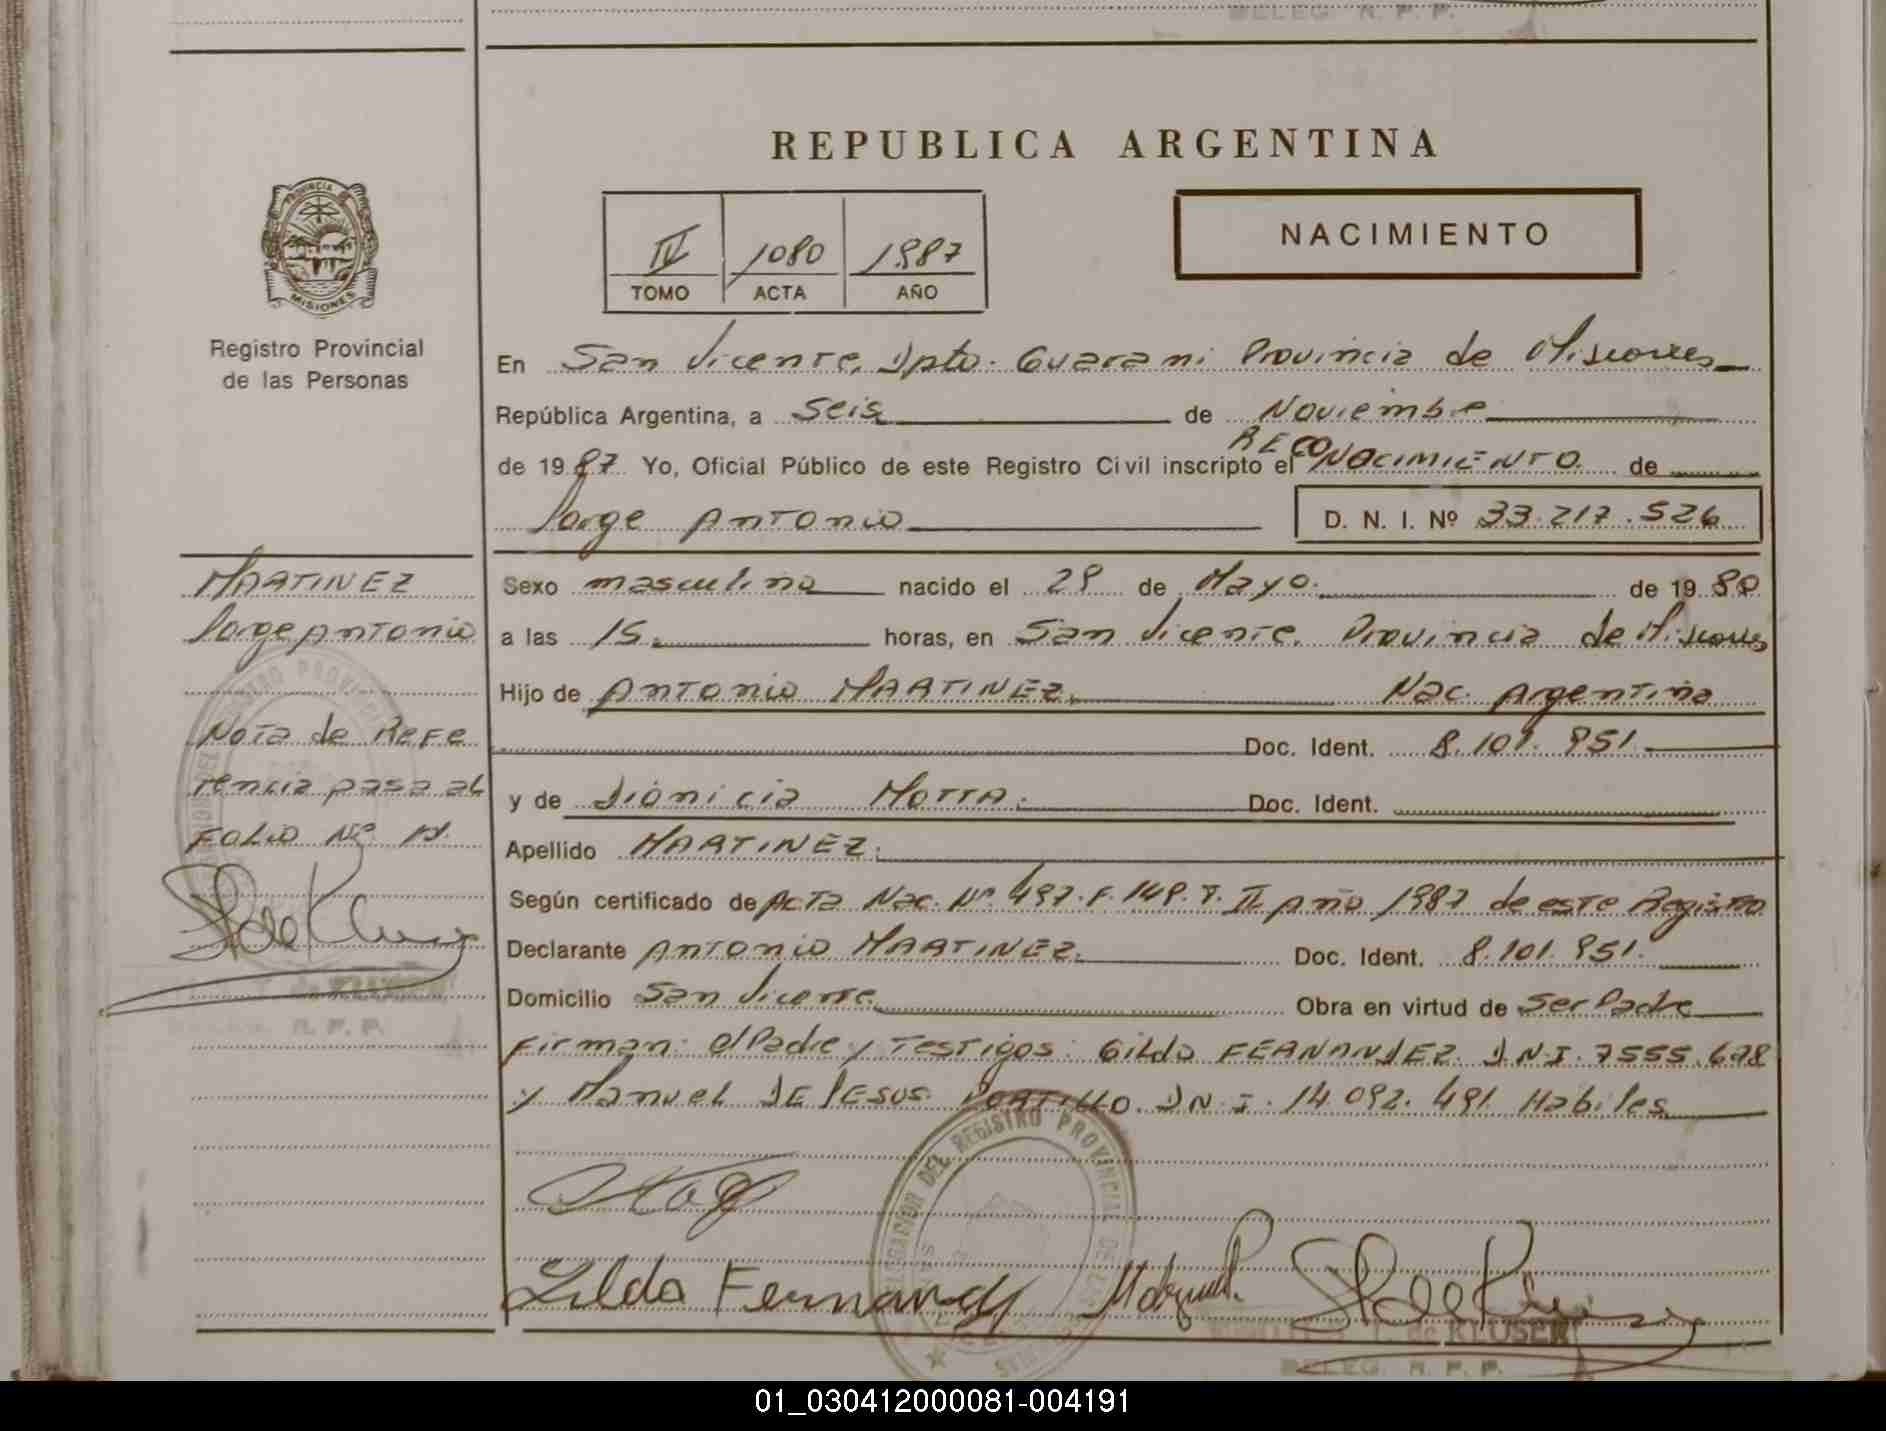 DELEG. R. P. P.
REPUBLICA ARGENTINA
PROVINCIA
MISIONES
Registro Provincial
de las Personas
IV 1080 1987
TOMO ACTA AÑO
NACIMIENTO
En San Vicente, Dpto. Guarani Provincia de Misiones
República Argentina, a Seis de Noviembre
de 1987 Yo, Oficial Público de este Registro Civil inscripto el RECONOCIMIENTO de
Jorge Antonio D. N. I. Nº 33.217.526
MARTINEZ
Jorge Antonio
Nota de Refe
rencia pasa al
FOLIO Nº
Sexo masculino nacido el 29 de Mayo de 1980
a las 15 horas, en San Vicente. Provincia de Misiones
Hijo de Antonio MARTINEZ. Nac. Argentina
Doc. Ident. 8.101.951
y de Dionicia MOTTA. Doc. Ident.
Apellido MARTINEZ.
Según certificado de Acta Nac. Nº 497. F. 149. T. II año 1987 de este Registro
Declarante Antonio MARTINEZ. Doc. Ident. 8.101.951.
Domicilio San Vicente Obra en virtud de Ser Padre
Firman: el Padre y Testigos: Gildo FERNANDEZ. D.N.I. 7555.698
y Manuel DE JESUS PORTILLO. D.N.I. 14.092.491 Habiles
DELEGACION DEL REGISTRO PROVINCIAL DE
Gildo Fernandez
de KLUSEN
DELEG. R. P. P.
01_030412000081-004191